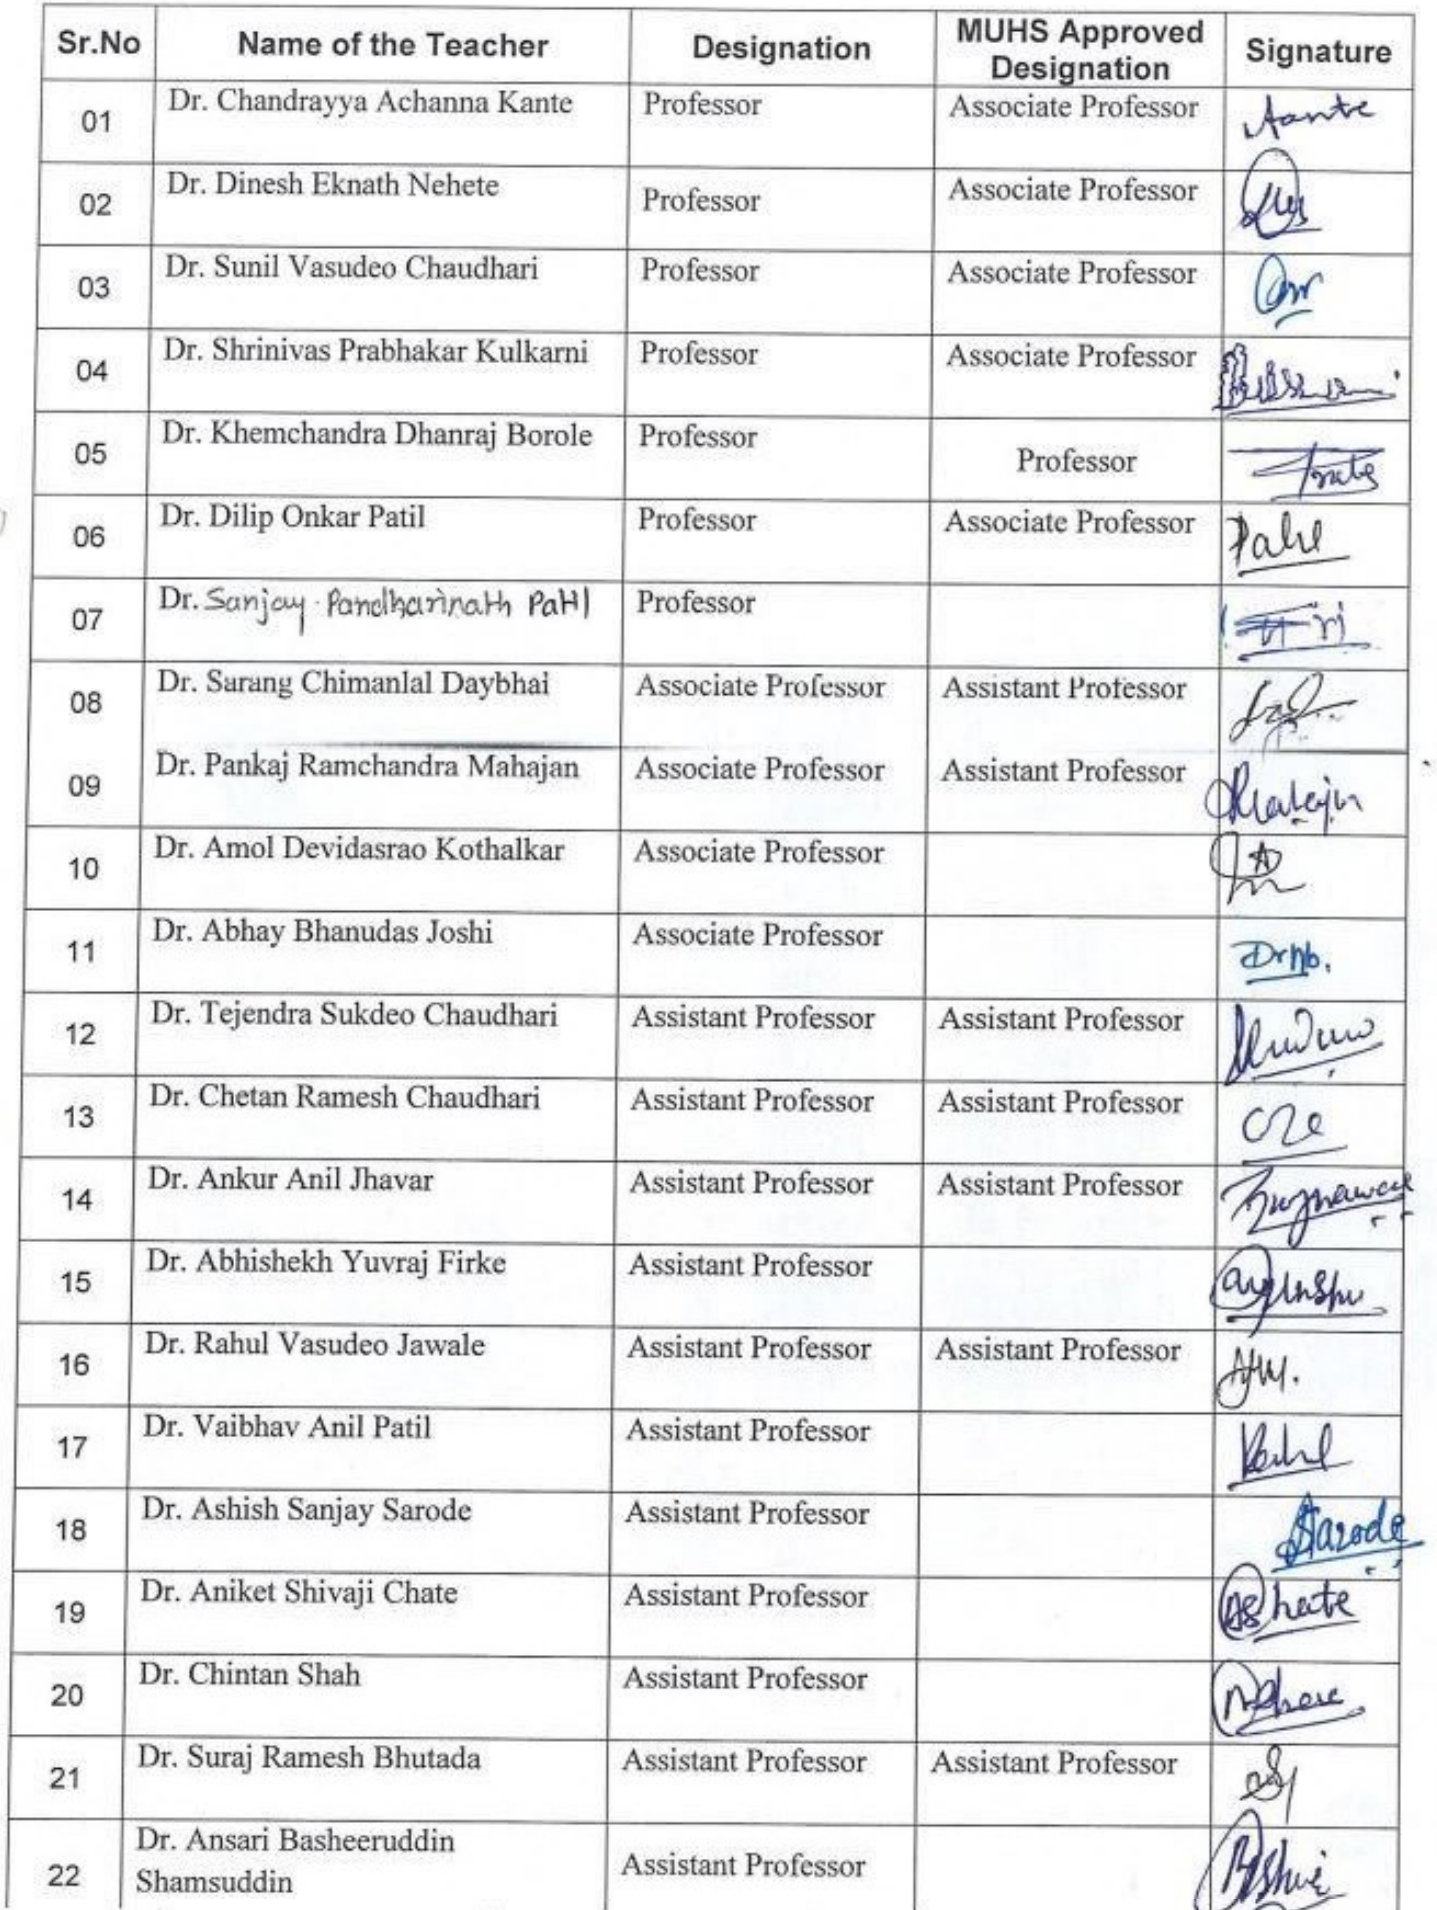 Sr.No Name of the Teacher Designation MUHS Approved Designation Signature
01 Dr. Chandrayya Achanna Kante Professor Associate Professor
02 Dr. Dinesh Eknath Nehete Professor Associate Professor
03 Dr. Sunil Vasudeo Chaudhari Professor Associate Professor
04 Dr. Shrinivas Prabhakar Kulkarni Professor Associate Professor
05 Dr. Khemchandra Dhanraj Borole Professor Professor
06 Dr. Dilip Onkar Patil Professor Associate Professor
07 Dr. Sanjay Pandharinath Patil Professor
08 Dr. Sarang Chimanlal Daybhai Associate Professor Assistant Professor
09 Dr. Pankaj Ramchandra Mahajan Associate Professor Assistant Professor
10 Dr. Amol Devidasrao Kothalkar Associate Professor
11 Dr. Abhay Bhanudas Joshi Associate Professor
12 Dr. Tejendra Sukdeo Chaudhari Assistant Professor Assistant Professor
13 Dr. Chetan Ramesh Chaudhari Assistant Professor Assistant Professor
14 Dr. Ankur Anil Jhavar Assistant Professor Assistant Professor
15 Dr. Abhishekh Yuvraj Firke Assistant Professor
16 Dr. Rahul Vasudeo Jawale Assistant Professor Assistant Professor
17 Dr. Vaibhav Anil Patil Assistant Professor
18 Dr. Ashish Sanjay Sarode Assistant Professor Sarode
19 Dr. Aniket Shivaji Chate Assistant Professor
20 Dr. Chintan Shah Assistant Professor
21 Dr. Suraj Ramesh Bhutada Assistant Professor Assistant Professor
22 Dr. Ansari Basheeruddin Shamsuddin Assistant Professor